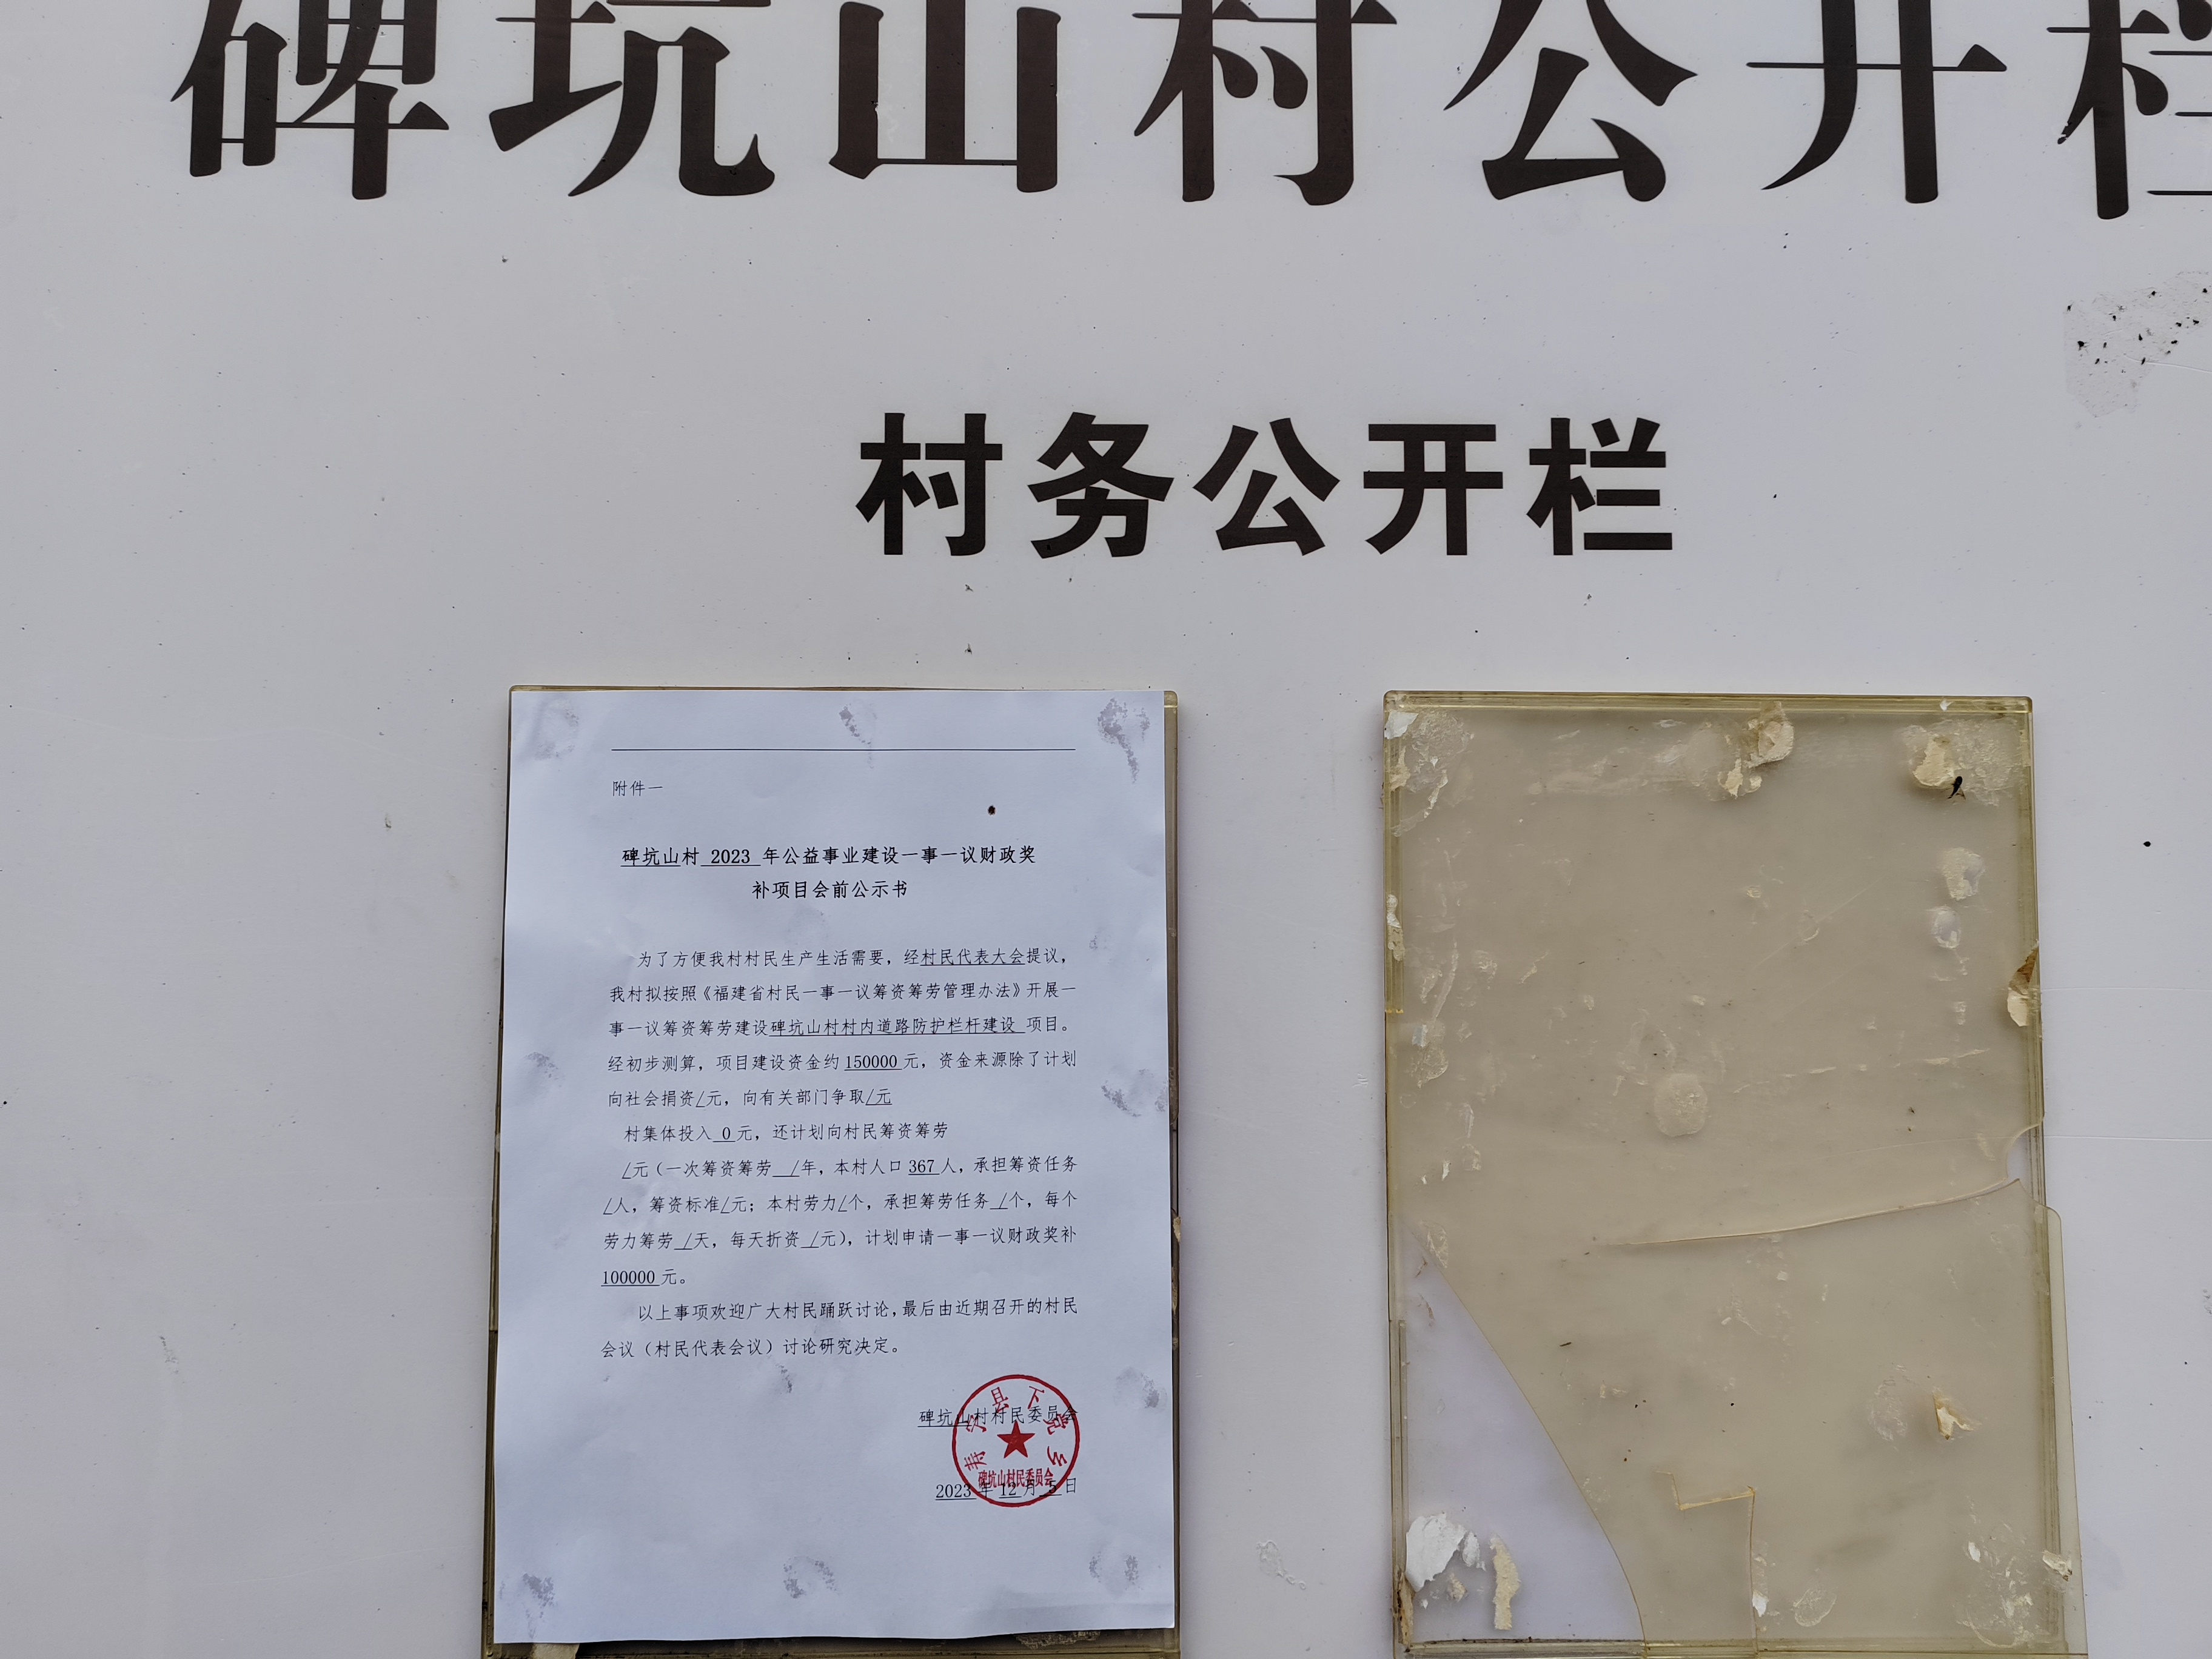 碑坑山村公开栏
村务公开栏
附件一
碑坑山村 2023 年公益事业建设一事一议财政奖
补项目会前公示书
为了方便我村村民生产生活需要，经村民代表大会提议，
我村拟按照《福建省村民一事一议筹资筹劳管理办法》开展一
事一议筹资筹劳建设碑坑山村村内道路防护栏杆建设 项目。
经初步测算，项目建设资金约 150000 元，资金来源除了计划
向社会捐资/元，向有关部门争取/元
村集体投入 0 元，还计划向村民筹资筹劳
/元（一次筹资筹劳 /年，本村人口 367 人，承担筹资任务
/人，筹资标准/元；本村劳力/个，承担筹劳任务 /个，每个
劳力筹劳 /天，每天折资 /元），计划申请一事一议财政奖补
100000 元。
以上事项欢迎广大村民踊跃讨论，最后由近期召开的村民
会议（村民代表会议）讨论研究决定。
碑坑山村村民委员会
寿宁县下党乡
碑坑山村民委员会
2023 年 12 月 5 日